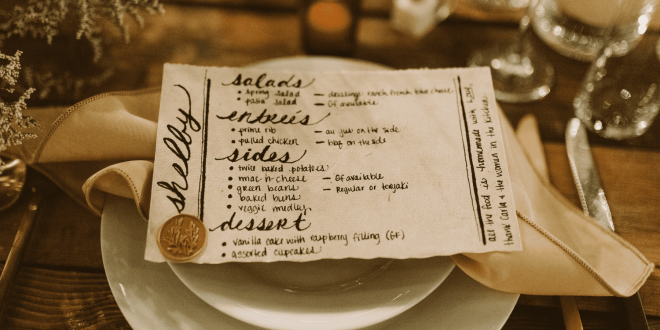 shelby
salads
• spring salad — dressings: ranch, french, blue cheese
• pasta salad — GF available
entreés
• prime rib — au jus on the side
• pulled chicken — bbq on the side
sides
• twice baked potatoes
• mac-n-cheese — GF available
• green beans — Regular or teriyaki
• baked buns
• veggie medley
dessert
• vanilla cake with raspberry filling (GF)
• assorted cupcakes
all the food is homemade with love,
thank Carla & the women in the kitchen